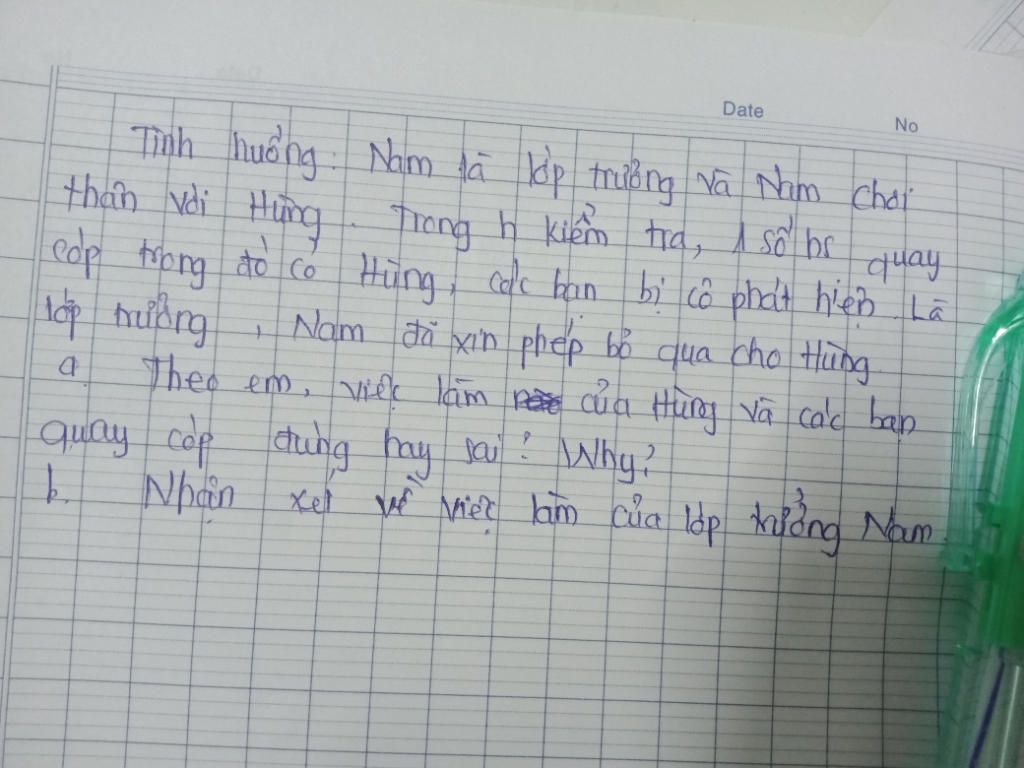 Date
No
Tình huống: Nam là lớp trưởng và Nam chơi
thân với Hùng. Trong h kiểm tra, 1 số hs quay
cóp trong đó có Hùng, các bạn bị cô phát hiện. Là
lớp trưởng, Nam đã xin phép bỏ qua cho Hùng
a. Theo em, việc làm của Hùng và các bạn
quay cóp đúng hay sai? Why?
b. Nhận xét về việc làm của lớp trưởng Nam.